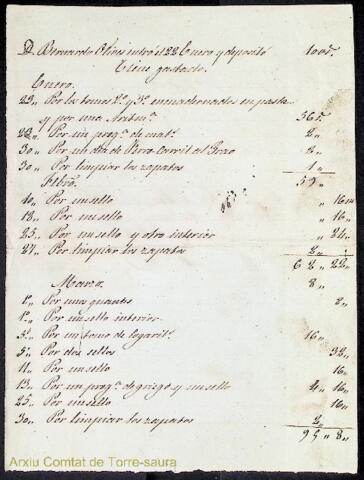 D. Bernardo Olives entró el 22 Enero y depositó 100 r.
Tiene gastado.
Enero.
23,, Por los tomos 2º y 3º encuadernados en pasta
y por una 56 r.
28,, Por un prog.ª de mat.s 2,,
30,, Por un día de Ferro Carril al 2,,
30,, Por limpiar los zapatos 1,,
Febro.
10,, Por un sello ,, 16
18,, Por un sello ,, 16,,
25,, Por un sello y otro interior ,, 24,,
27,, Por limpiar los zapatos 2,,
62,, 22,,
Marzo.
1º,, Por unos guantes 8,,
1º,, Por un sello interior
3,, Por un tomo de logarit.s 16,,
5,, Por dos sellos 32,,
11,, Por un sello 16,,
13,, Por un prog.ª de griego y un sello 4,, 16,,
25,, Por un sello 16,,
30,, Por limpiar los zapatos 2,,
95,, 8,,
Arxiu Comtat de Torre-saura